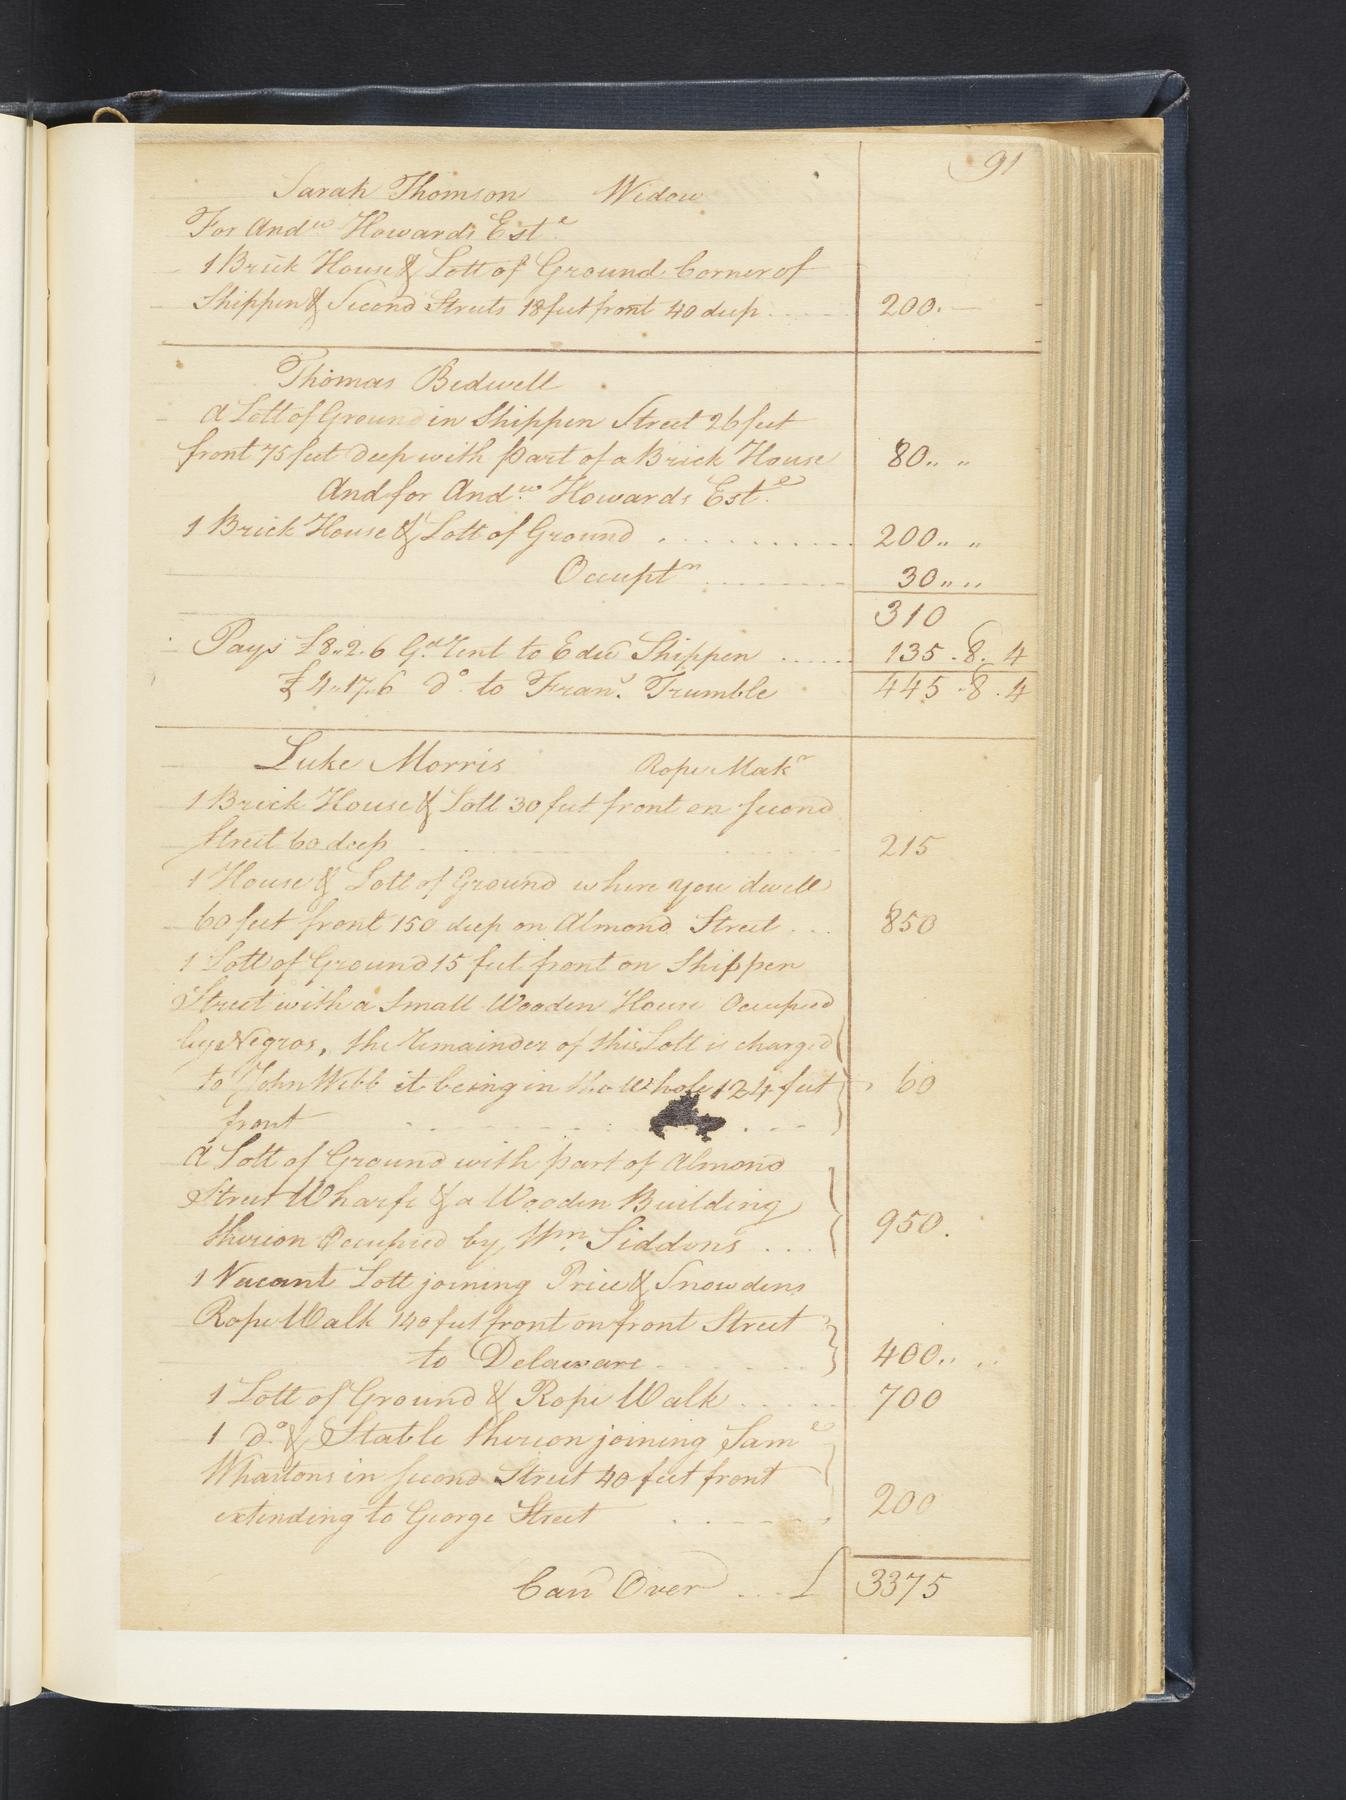 91
Sarah Thomson Widow
For Andw Howards Este
1 Brick House & Lott of Ground Corner of
Shippen & Second Streets 18 feet front 40 deep ..... 200.—
Thomas Bedwell
A Lott of Ground in Shippen Street 26 feet
front 75 feet deep with part of a Brick House 80.. ..
And for Andw. Howards Este.
1 Brick House & Lott of Ground .......... 200.. ..
Occuptn ........ 30.. ..
310
Pays £8..2.6 Gd. Rent to Edw Shippen ..... 135.8.4
£4.17.6 Do. to Frans. Trumble 445.8.4
Luke Morris Rope Makr
1 Brick House & Lott 30 feet front on Second
Street 60 deep ..... 215
1 House & Lott of Ground where you dwell
60 feet front 150 deep on Almond Street ... 850
1 Lott of Ground 15 feet front on Shippen
Street with a Small Wooden House Occupied
by Negros, the Remainder of this Lott is charged
to John Webb it being in the whole 124 feet 60
front ......
A Lott of Ground with part of Almond
Street Wharfe & a Wooden Building 950.
thereon Occupied by Wm. Siddons ...
1 Vacant Lott joining Price & Snowdens
Rope Walk 140 feet front on front Street
to Delaware ....... 400.. ..
1 Lott of Ground & Rope Walk ..... 700
1 Do. & Stable thereon joining Saml
Whartons in Second Street 40 feet front
extending to George Street ..... 200
Card Over ... £ 3375